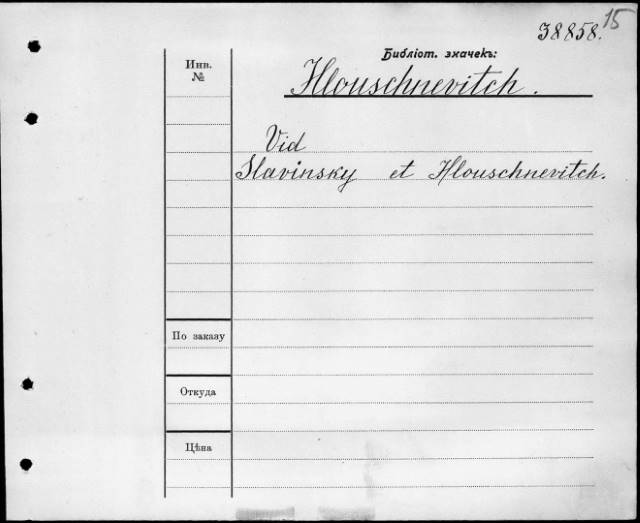 15
38858.
Библіот. значекъ:
Инв.
№
Hlouschnevitch.
Vid
Slavinsky et Hlouschnevitch.
По заказу
Откуда
Цѣна